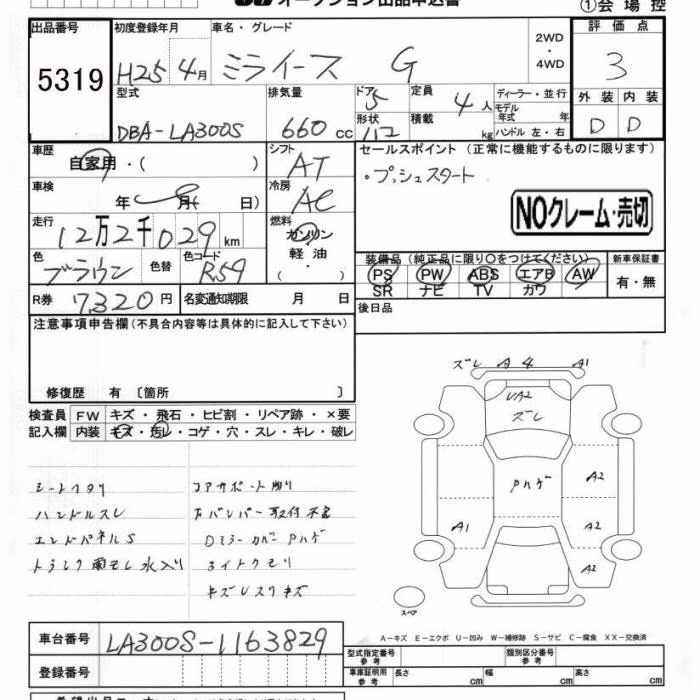 オークション出品申込書
①会場控
出品番号
5319
初度登録年月
H25 4月
車名・グレード
ミライース G
2WD
・
4WD
評価点
3
外装 内装
D D
型式
DBA-LA300S
排気量
660 cc
ドア
5
形状
定員
4人
積載
kg
ディーラー・並行
モデル
年式 年
ハンドル 左・右
車歴
自家用・( )
シフト
AT
車検
年 月( 日)
冷房
AC
走行
12万2千029km
燃料
ガソリン
軽油
・( )
色
ブラウン
色替
色コード
R59
R券
7,320円
名変通知期限 月 日
セールスポイント(正常に機能するものに限ります)
・プッシュスタート
NOクレーム・売切
装備品(純正品に限り○をつけてください)
PS PW ABS エアB AW
SR ナビ TV カワ
新車保証書
有・無
後日品
注意事項申告欄(不具合内容等は具体的に記入して下さい)
修復歴 有〔箇所 〕
検査員 FW キズ・飛石・ヒビ割・リペア跡・×要
記入欄 内装 キズ・汚レ・コゲ・穴・スレ・キレ・破レ
シートヘタリ
ハンドルスレ
エンドパネルS
トランク雨モレ水入り
コアサポート曲り
FバンパーR取付不良
DミラーカバーPハゲ
ライトクモリ
キズレスリキズ
ズレ A4 A1
UA2
ズレ
Pハゲ
A2
A1 A2
A2
スペア
A-キズ E-エクボ U-凹み W-補修跡 S-サビ C-腐食 XX-交換済
車台番号
LA300S-1163829
登録番号
型式指定番号
参考
類別区分番号
参考
車庫証明用
参考
長さ cm 幅 cm 高さ cm